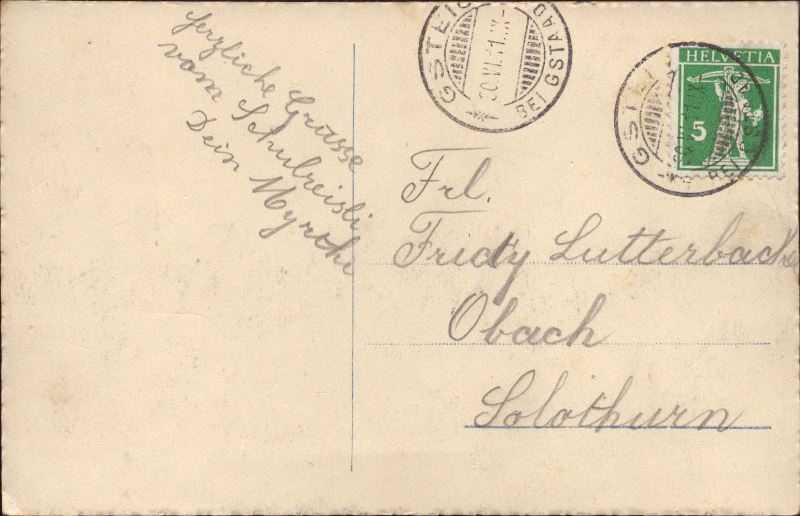 Herzliche Grüsse
vom Schulreisli
Dein Myrthe
GSTEIG
BEI GSTAAD
HELVETIA
5
GSTEI
BEI
Frl.
Fridy Lutterbacher
Obach
Solothurn